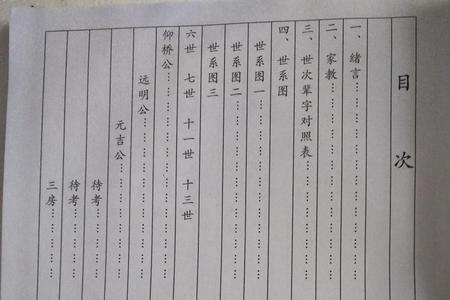 目次
一、绪言……………………
二、家教……………………
三、世次辈字对照表……………
四、世系图
世系图一……………………
世系图二……………………
世系图三……………………
六世 七世 十一世 十三世
仰桥公……………………
远明公……………………
元吉公……………………
待考……………………
待考……………………
三房……………………